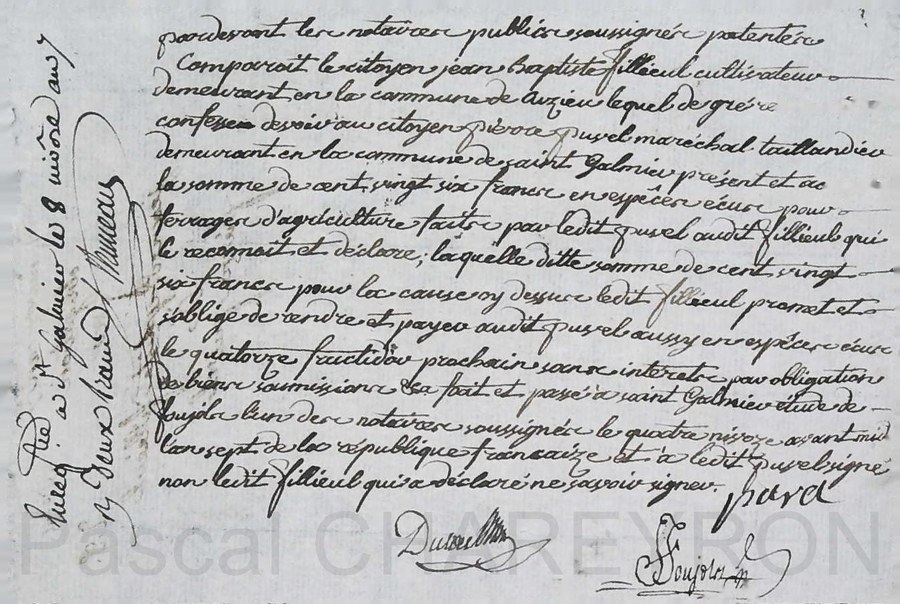 pardevant les notaires publics soussignés patentés
Comparoit le citoyen jean Baptiste fillieul cultivateur
demeurant en la commune de auzieu lequel de gré se
confesse devoir au citoyen pierre puvel maréchal taillandier
demeurant en la commune de saint Galmier présent et ac
la somme de cent vingt six francs en espéces écus pour
ferrages d'agriculture faits par ledit puvel audit fillieul qui
le reconnoit et déclare, laquelle ditte somme de cent vingt
six francs pour la cause cy dessus ledit fillieul promet et
s'oblige de rendre et payer audit puvel aussy en espéces écus
le quatorze fructidor prochain sans intérets par obligation
de biens soumissions &a fait et passé à saint Galmier étude de
foujols l'un des notaires soussignés le quatre nivoze avant midi
l'an sept de la république francaize et a ledit puvel signé
non ledit fillieul qui a déclaré ne savoir signer.
Foujols
à St Galmier le 8 nivôse an 7
deux francs
Pascal CHAREYRON